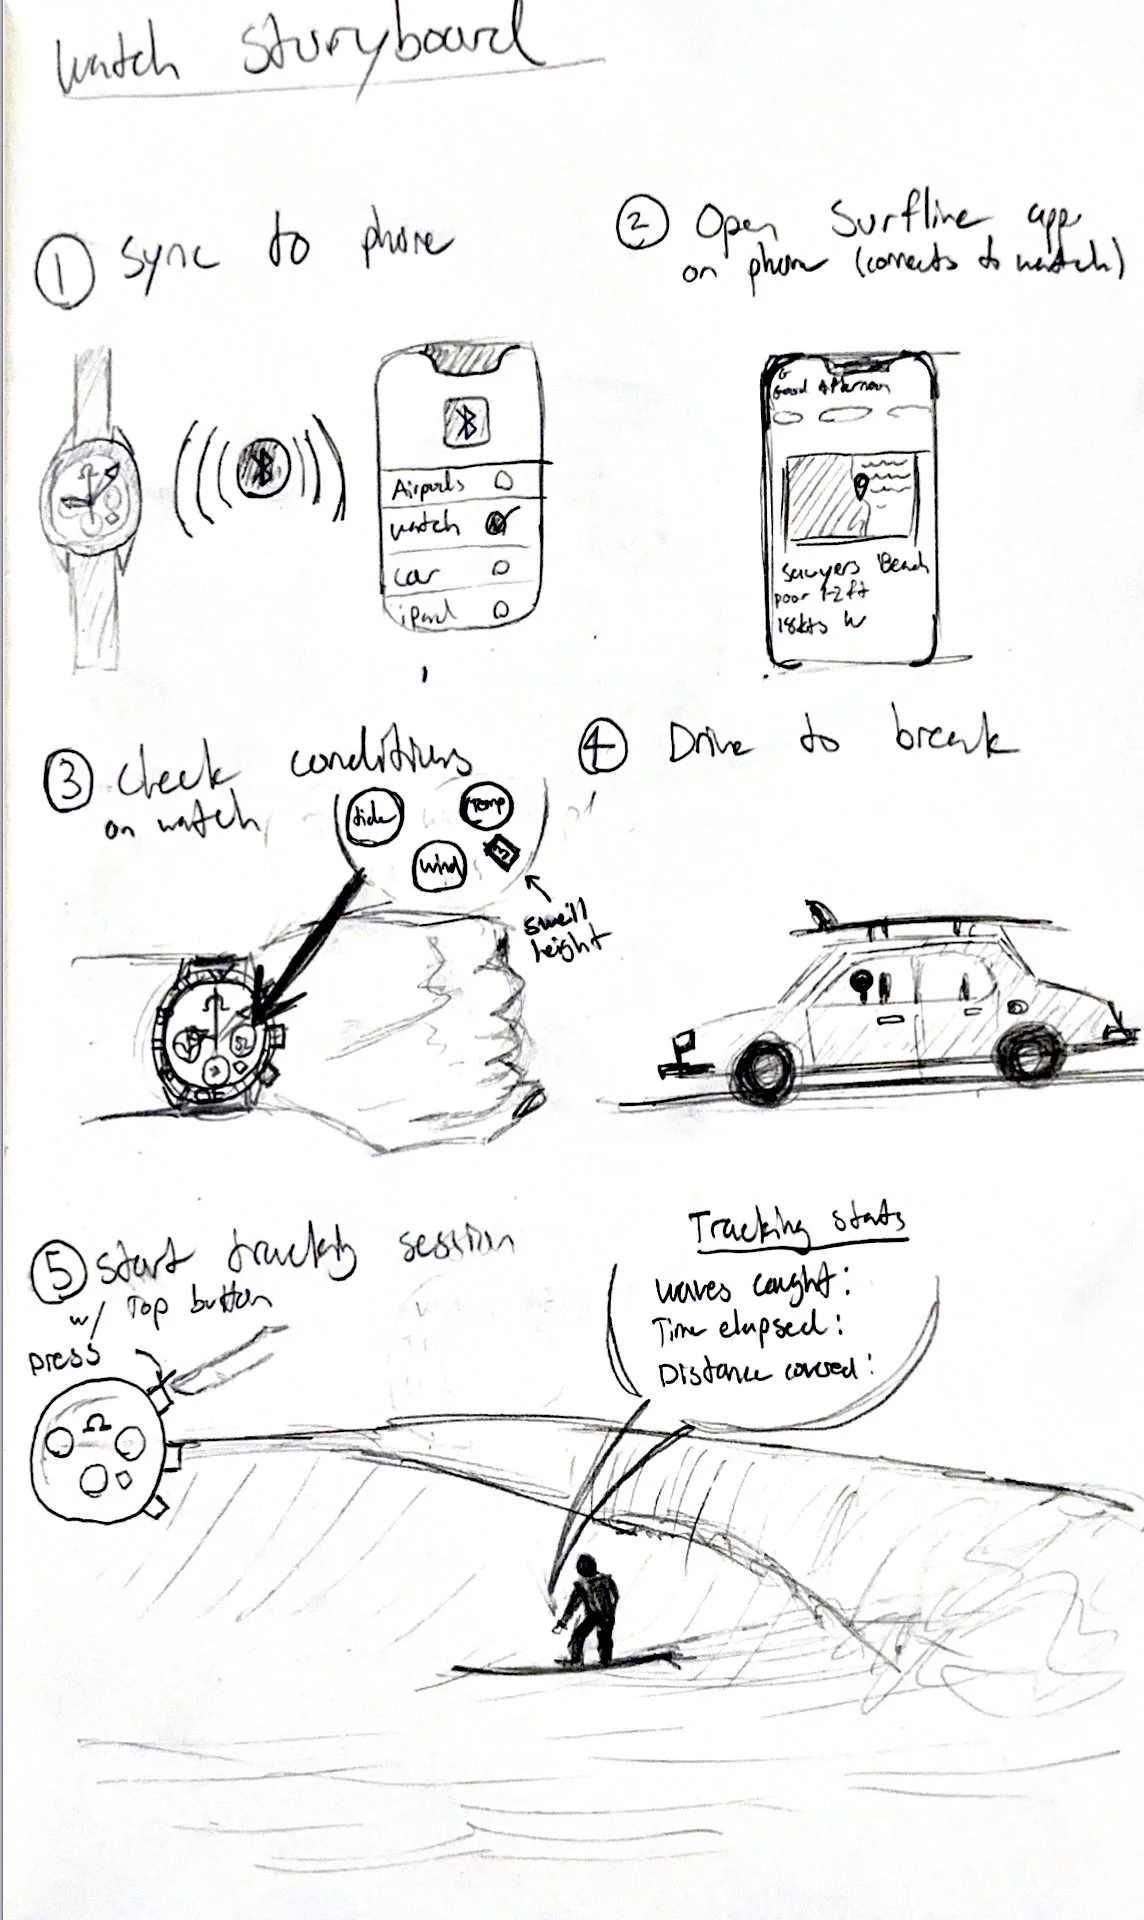 watch storyboard
① Sync to phone
② Open Surfline app
on phone (connects to watch)
Airpods
watch
car
iPad
Good Afternoon
Sawyers Beach
poor 1-2 ft
18kts W
③ Check conditions
on watch
tide
Temp
wind
3
swell
height
④ Drive to break
⑤ start tracking session
w/ Top button
press
Ω
Tracking stats
waves caught:
Time elapsed:
Distance covered: